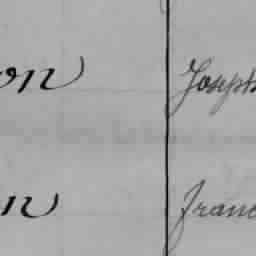 on Joseph
n Franc